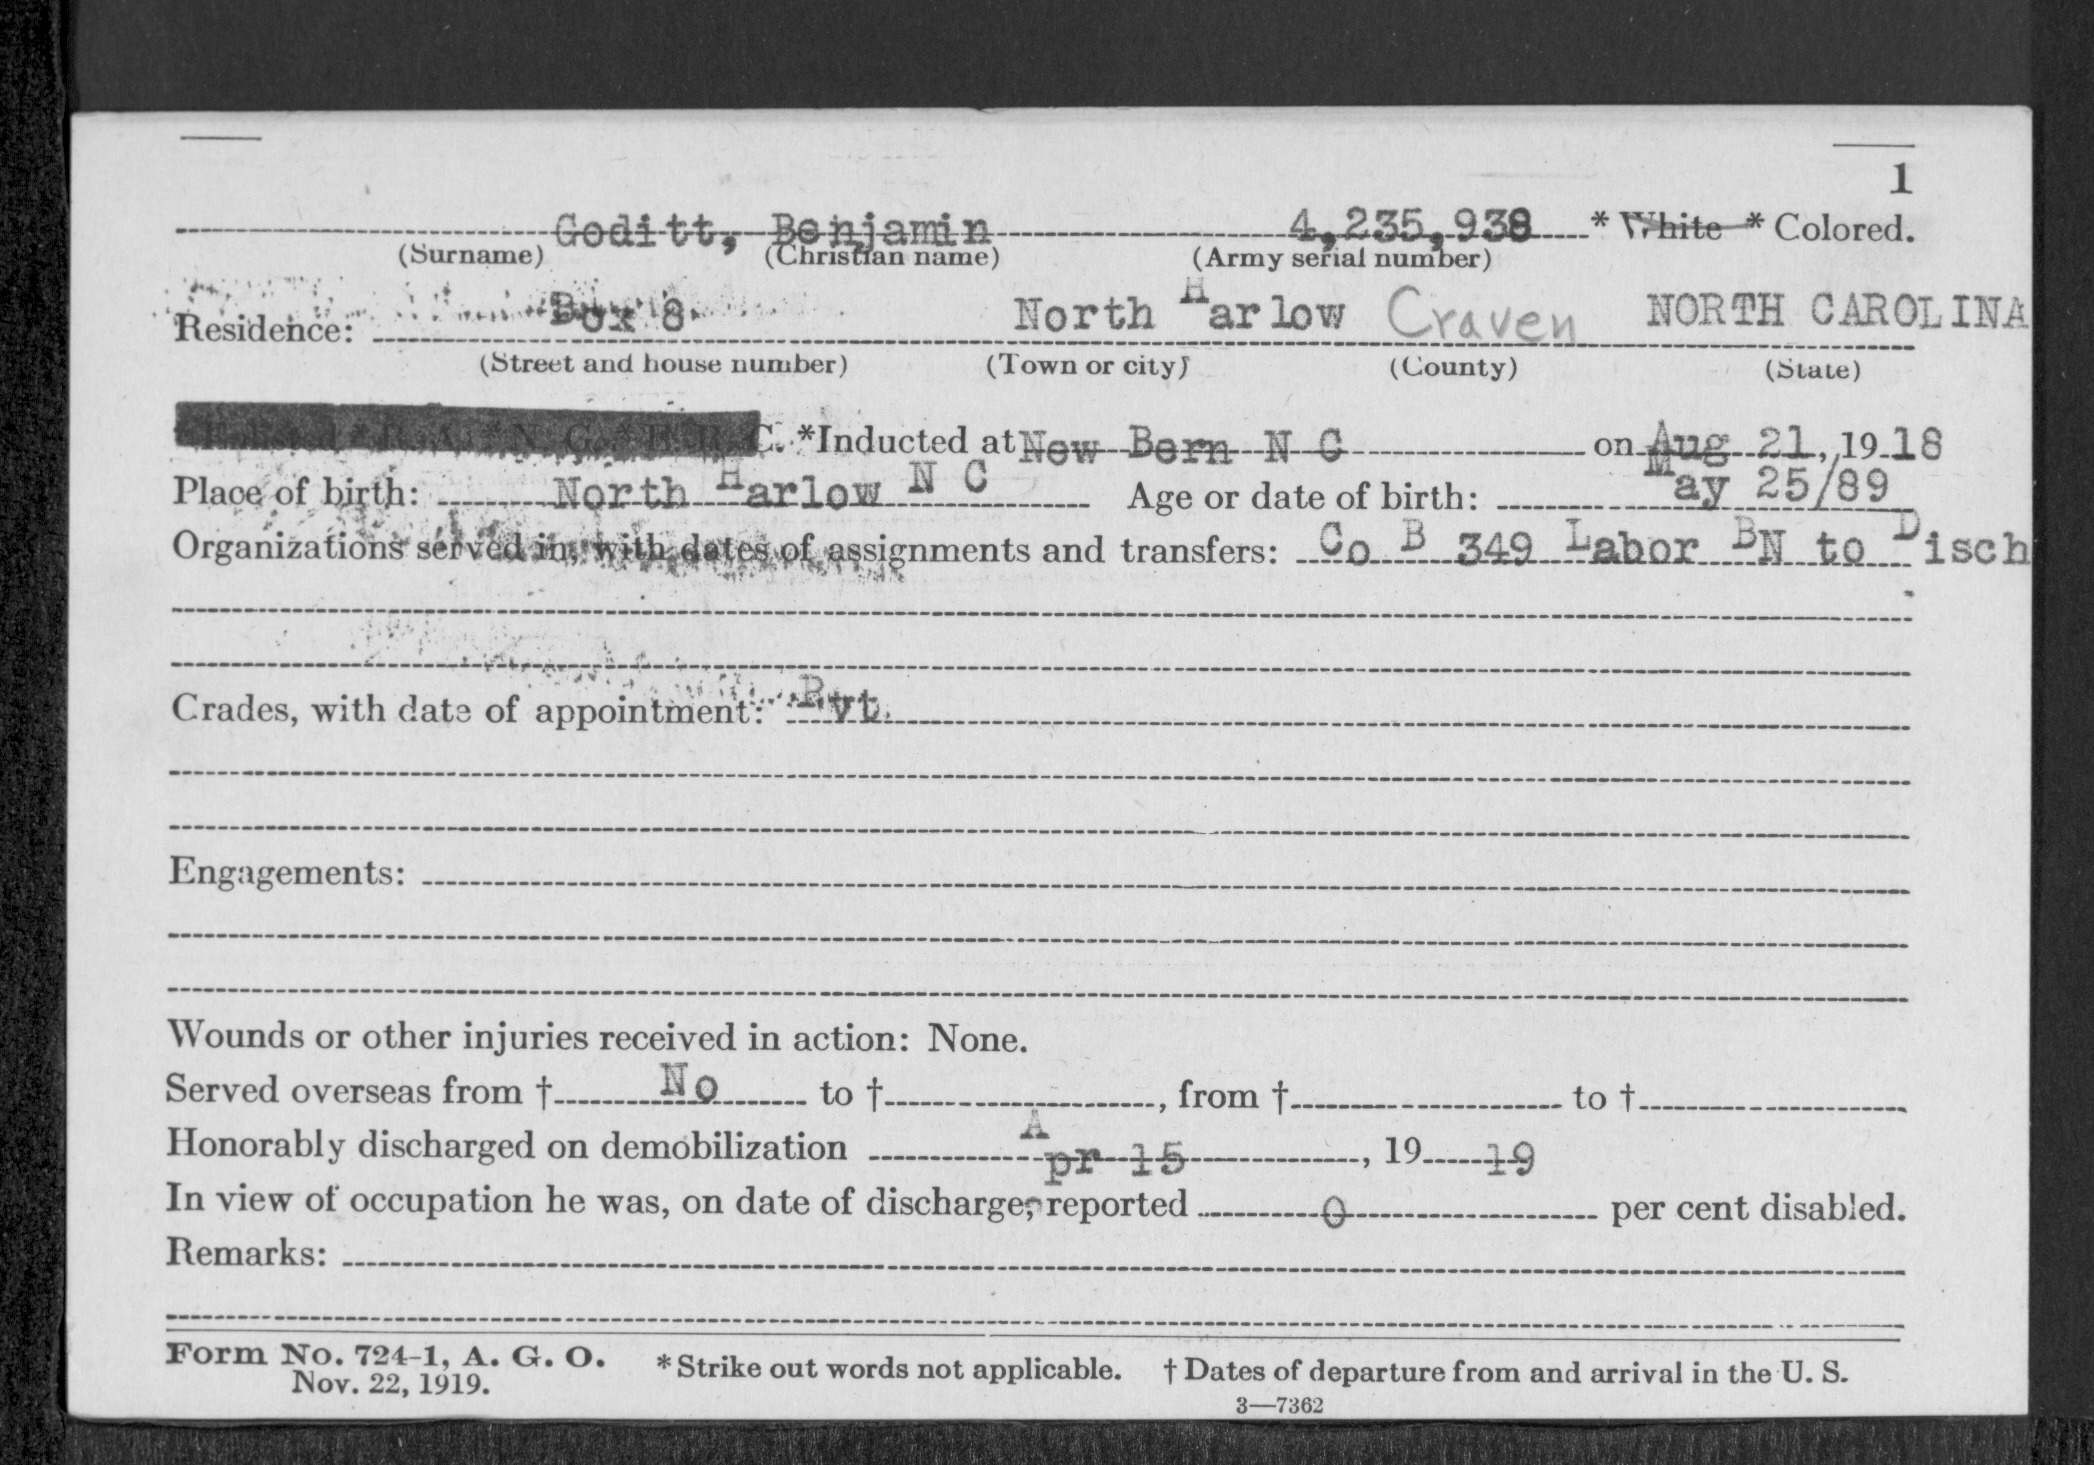 1
Goditt, Benjamin 4,235,938 * White * Colored.
(Surname) (Christian name) (Army serial number)
Residence: Box 8 North Harlow Craven NORTH CAROLINA
(Street and house number) (Town or city) (County) (State)
* Enlisted * R. A. * N. G. * E. R. C. *Inducted at New Bern N C on Aug 21, 1918
Place of birth: North Harlow N C Age or date of birth: May 25/89
Organizations served in, with dates of assignments and transfers: Co B 349 Labor BN to Disch
Grades, with date of appointment: Pvt.
Engagements:
Wounds or other injuries received in action: None.
Served overseas from † No to †, from † to †
Honorably discharged on demobilization Apr 15, 19 19
In view of occupation he was, on date of discharge, reported 0 per cent disabled.
Remarks:
Form No. 724-1, A. G. O. * Strike out words not applicable. † Dates of departure from and arrival in the U. S.
Nov. 22, 1919.
3—7362